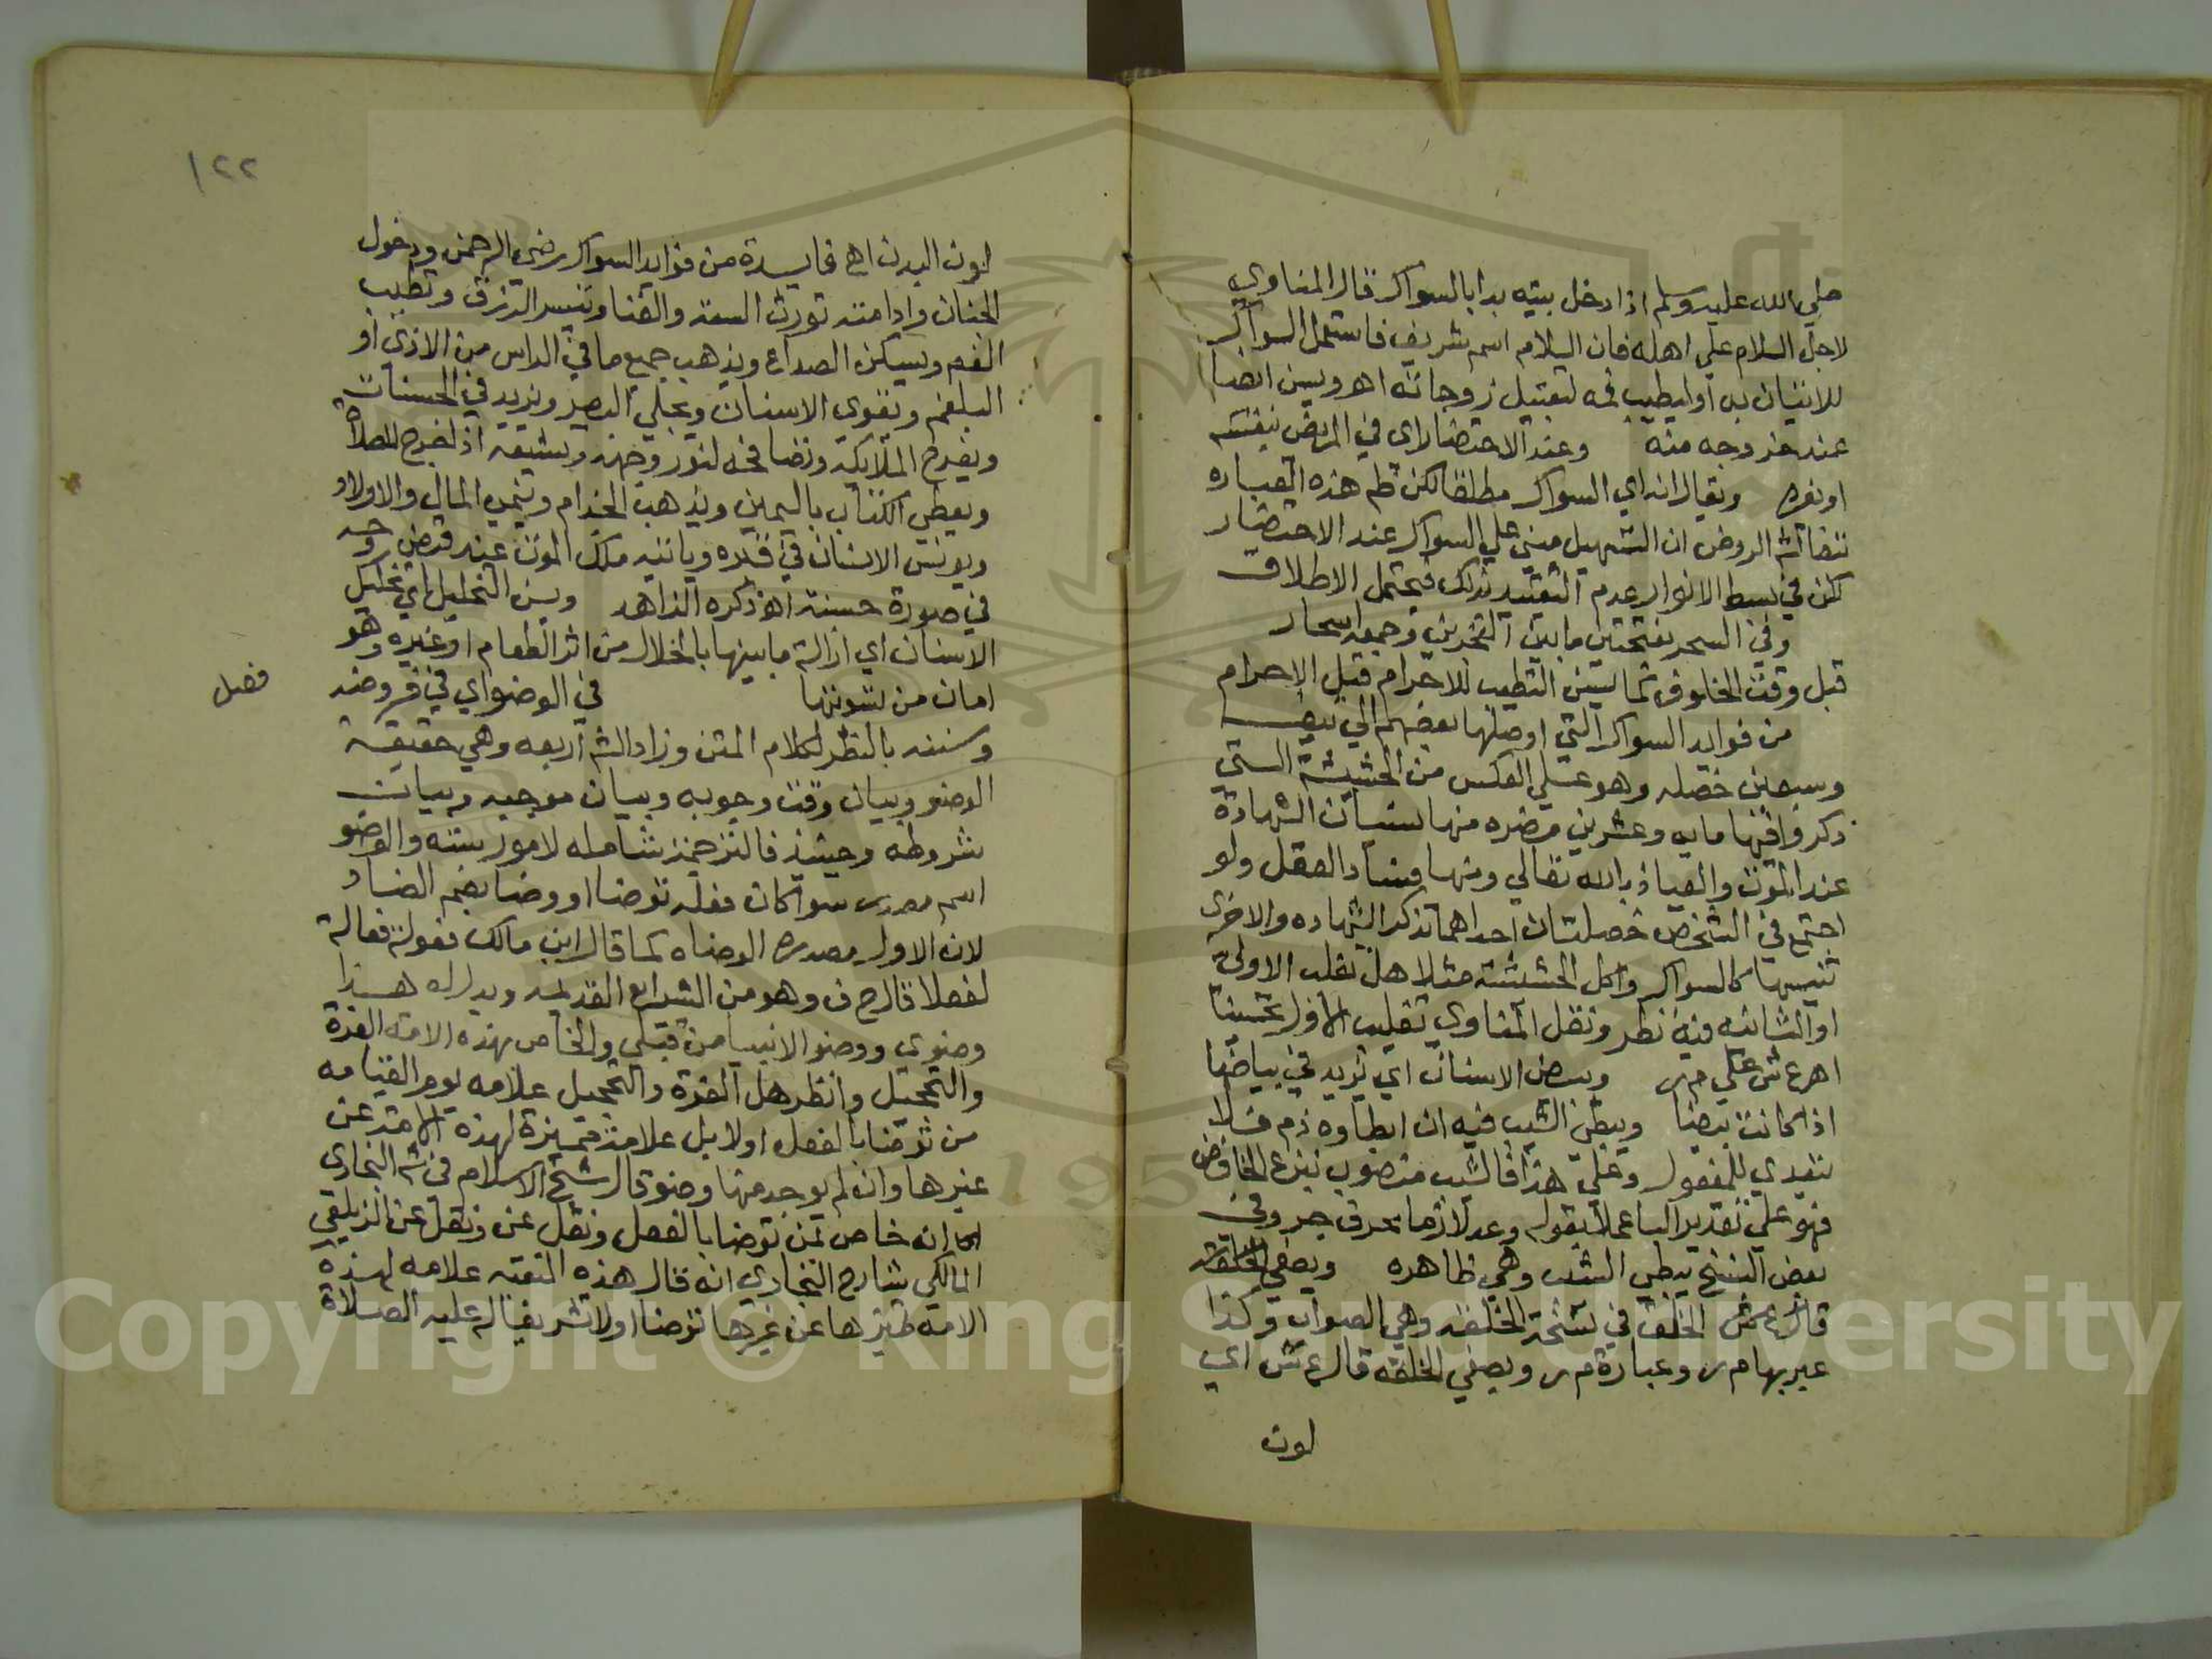 صلي الله عليه وسلم اذا دخل بيته بدا بالسواك قال المناوي
لاجل السلام علي اهله فان السلام اسم شريف فاستعمل السواك
للاتيان به او ليطيب فمه لتقبيل زوجاته اهـ ويسن ايضا
عند خروجه منه وعند الاحتضار اي في المريض بنفسه
او بغيره ويقال انه اي السواك مطلقا لكن ظم هذه العباره
كش الروض ان التسهيل مبني علي السواك عند الاحتضار
لكن في بسط الانوار عدم التقييد بذلك فيحتمل الاطلاق
وفي السحر بفتحتين ما بين الفجرين وجمعه اسحار
قبل وقت الخلوف كما يسن التطيب للاحرام قبل الاحرام
من فوايد السواك التي اوصلها بعضهم الي نيف
وسبعين خصله وهو علي العكس من الحشيشة التي
ذكروا فيها مايه وعشرين مضره منها نسيان الشهادة
عند الموت والعياذ بالله تعالي ومنها فساد العقل ولو
اجتمع في الشخص خصلتان احداهما تذكر الشهاده والاخرى
تنسيها كالسواك واكل الحشيشة مثلا هل تغلب الاولى
او الثانيه فيه نظر ونقل المناوي تغليب الاول تحسينا
اهـ ع ش علي م ر ويبيض الاسنان اي يزيد في بياضها
اذا كانت بيضا ويبطي الشيب فيه ان ابطا وه ذم فلا
يتعدي للمفعول وعلي هذا فالشيب منصوب بنزع الخافض
فهو علي تقدير البا عملا بقوله وعد لازما بحرف جر وفي
بعض النسخ يبطي الشيب وهي ظاهره ويصفي الخلقه
قال ع ش الخلق في نسخة الخلقه وهي الصواب وكذا
عبر بها م ر وعبارة م ر ويصفي الخلقه قال ع ش اي
لون
١٢٢
لون البدن اهـ فايدة من فوايد السواك رضى الرحمن ودخول
الجنان وادامته تورث السعة والغنا وتيسر الرزق وتطيب
الفم ويسكن الصداع ويذهب جميع ما في الراس من الاذى او
البلغم ويقوى الاسنان ويجلي البصر ويزيد في الحسنات
ويفرح الملائكة وتصافحه لنور وجهه وتشيعه اذا خرج للصلاة
ويعطي الكتاب باليمين ويذهب الجذام وينمي المال والاولاد
ويونس الانسان في قبره وياتيه ملك الموت عند قبض روحه
في صورة حسنة اهـ ذكره الزاهد ويسن التخليل اي تخليل
الاسنان اي ازالة ما بينها بالخلال من اثر الطعام او غيره وهو
امان من تسوسها في الوضو اي في فروضه
فصل
وسننه بالنظر لكلام المتن وزاد الش اربعه وهي حقيقة
الوضو وبيان وقت وجوبه وبيان موجبه وبيان
شروطه وحينئذ فالترجمة شامله لامور سته والوضو
اسم مصدر سوا كان فعله توضا او وضا بضم الضاد
لان الاول مصدره الوضاه كما قال ابن مالك فعولة فعالة
لفعلا قال ح ف وهو من الشرايع القديمه ويدل له هذا
وضوي ووضو الانبيا من قبلي والخاص بهذه الامة الغرة
والتحجيل وانظر هل الغرة والتحجيل علامه يوم القيامه
من توضا بالفعل اولا بل علامة مميزة لهذه الامة عن
غيرها وان لم يوجد منها وضو قال شيخ الاسلام في ش البخارى
انه خاص بمن توضا بالفعل ونقل عن ونقل عن الزيلعي
المالكي شارح البخاري انه قال هذه النقبه علامه لهذه
الامه تميزها عن غيرها توضا اولا ثم يقال عليه الصلاة